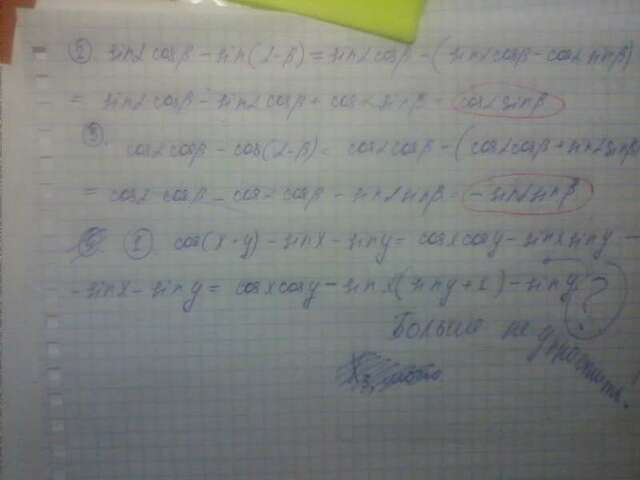 ② sinα cosβ - sin(α-β) = sinα cosβ - (sinα cosβ - cosα sinβ)
= sinα cosβ - sinα cosβ + cosα sinβ = cosα sinβ
③ cosα cosβ - cos(α-β) = cosα cosβ - (cosα cosβ + sinα sinβ
= cosα cosβ - cosα cosβ - sinα sinβ = - sinα sinβ
① cos(x+y) - sinx - siny = cosx cosy - sinx siny -
- sinx - siny = cosx cosy - sinx(siny+1) - siny ?
Больше не упростить!